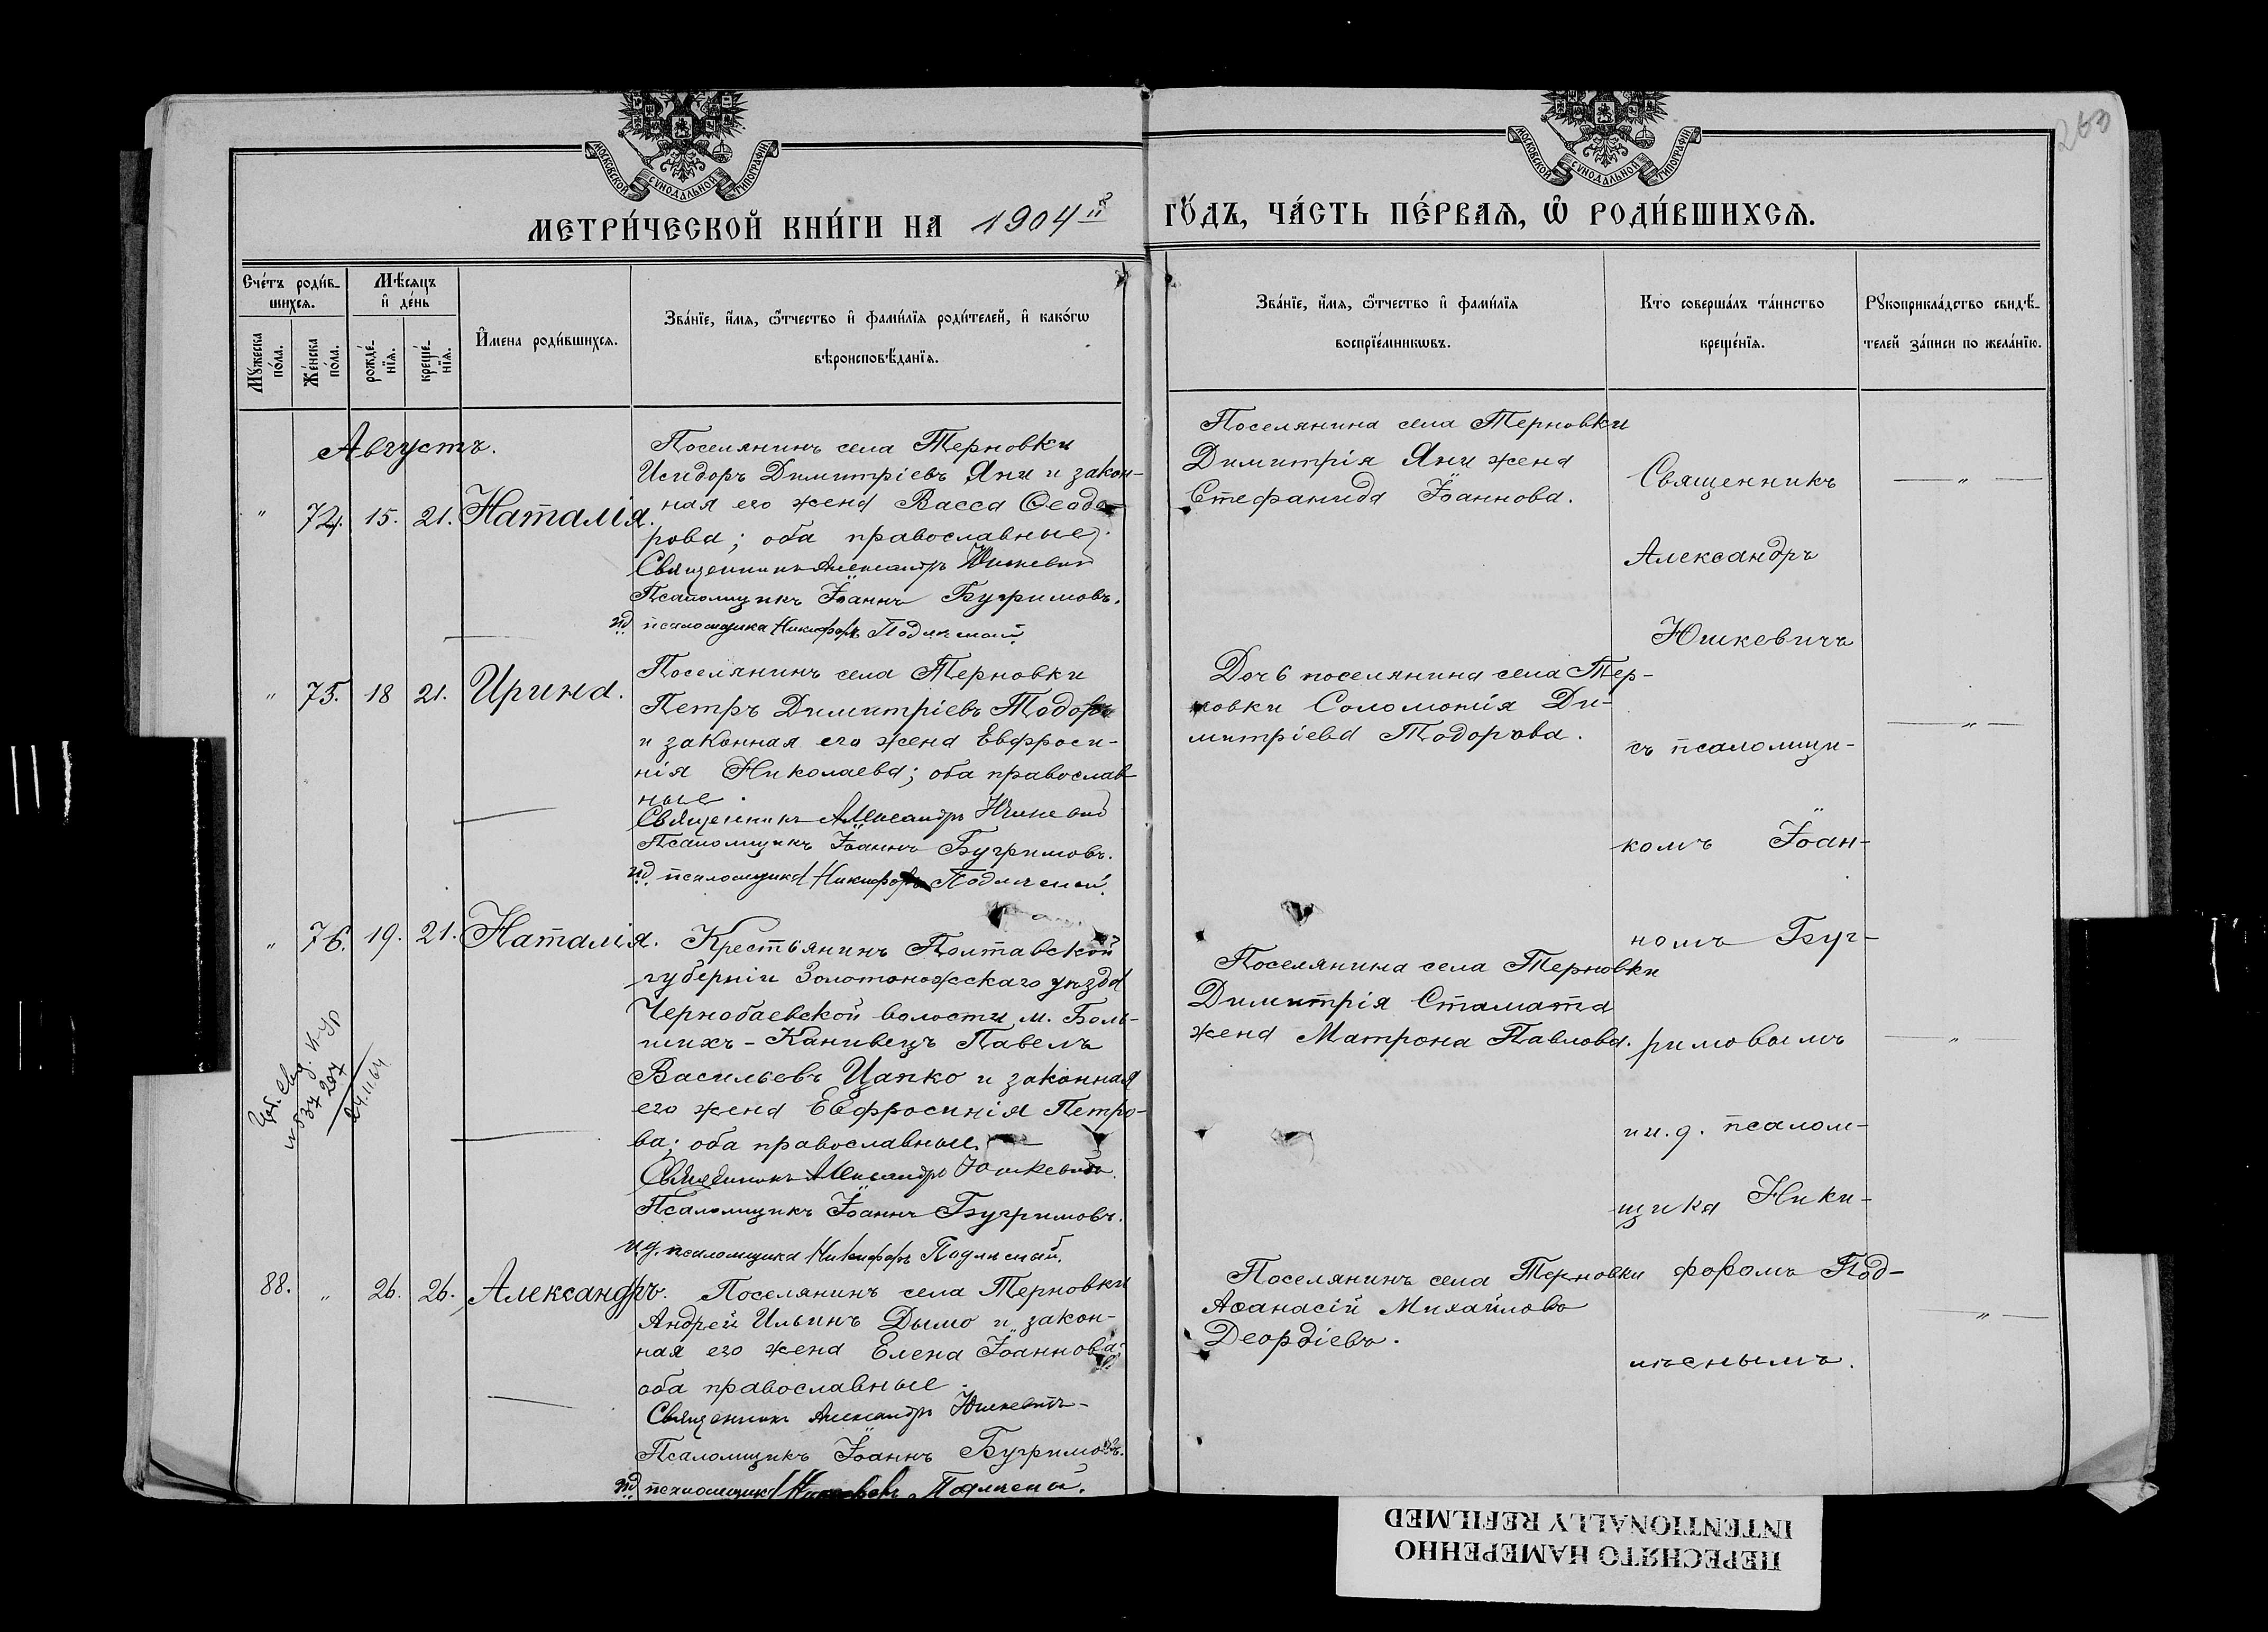 263
МОСКОВСКОЙ СѴНОДАЛЬНОЙ ТИПОГРАФІИ
МОСКОВСКОЙ СѴНОДАЛЬНОЙ ТИПОГРАФІИ
МЕТРИ́ЧЕСКОЙ КНИ́ГИ НА 1904й
ГО́ДЪ, ЧА́СТЬ ПЕ́РВАѦ, Ѽ РОДИ́ВШИХСѦ.
Сче́тъ роди́в-
шихсѧ.
Мꙋ́жеска по́ла.
Же́нска по́ла.
Мѣ́сѧцъ
и҆ де́нь
рожде́-
нїѧ.
креще́-
нїѧ.
И҆мена роди́вшихсѧ.
Зва́нїе, и҆́мѧ, ѻ҆́тчество и҆ фами́лїѧ роди́телей, и҆ како́гѡ
вѣроисповѣ́данїѧ.
Зва́нїе, и҆́мѧ, ѻ҆́тчество и҆ фами́лїѧ
воспрїе́мникѡвъ.
Кто соверша́лъ та́инство
креще́нїѧ.
Рꙋкоприкла́дство свидѣ́-
телей за́писи по жела́нїю.
Августъ.
" 74. 15. 21. Наталія.
Поселянинъ села Терновки
Исидоръ Димитріевъ Яни и закон-
ная его жена Васса Ѳеодо-
рова; оба православные.
Священникъ Александръ Юшкевичъ
Псаломщикъ Іоаннъ Бугримовъ.
ид псаломщика Никифоръ Подлѣсный
Поселянина села Терновки
Димитрія Яни жена
Стефанида Іоаннова.
" 75. 18 21. Ирина.
Поселянинъ села Терновки
Петръ Димитріевъ Тодоровъ
и законная его жена Евфроси-
нія Николаева; оба православ-
ные.
Священникъ Александръ Юшкевичъ
Псаломщикъ Іоаннъ Бугримовъ.
ид. псаломщика Никифоръ Подлѣсный.
Дочь поселянина села Тер-
новки Соломонія Ди-
митріева Тодорова.
" 76. 19. 21. Наталія.
Крестьянинъ Полтавской
губерніи Золотоножскаго уѣзда
Чернобаевской волости м. Боль-
шихъ-Канивецъ Павелъ
Васильевъ Цапко и законная
его жена Евфросинія Петро-
ва; оба православные.
Священникъ Александръ Юшкевичъ.
Псаломщикъ Іоаннъ Бугримовъ.
и.д. псаломщика Никифоръ Подлѣсный.
24.11.64
Поселянина села Терновки
Димитрія Стамата
жена Матрона Павлова.
88. " 26. 26. Александръ.
Поселянинъ села Терновки
Андрей Ильинъ Дымо и закон-
ная его жена Елена Іоаннова;
оба православные.
Священникъ Александръ Юшкевичъ
Псаломщикъ Іоаннъ Бугримовъ.
ид псаломщика Никифоръ Подлѣсный.
Поселянинъ села Терновки
Аѳанасій Михайловъ
Деордіевъ.
Священникъ
Александръ
Юшкевичъ
съ псаломщи-
комъ Іоан-
номъ Буг-
римовымъ
и и.д. псалом-
щика Ники-
форомъ Под-
лѣснымъ.
ПЕРЕСНЯТО НАМЕРЕННО
INTENTIONALLY REFILMED